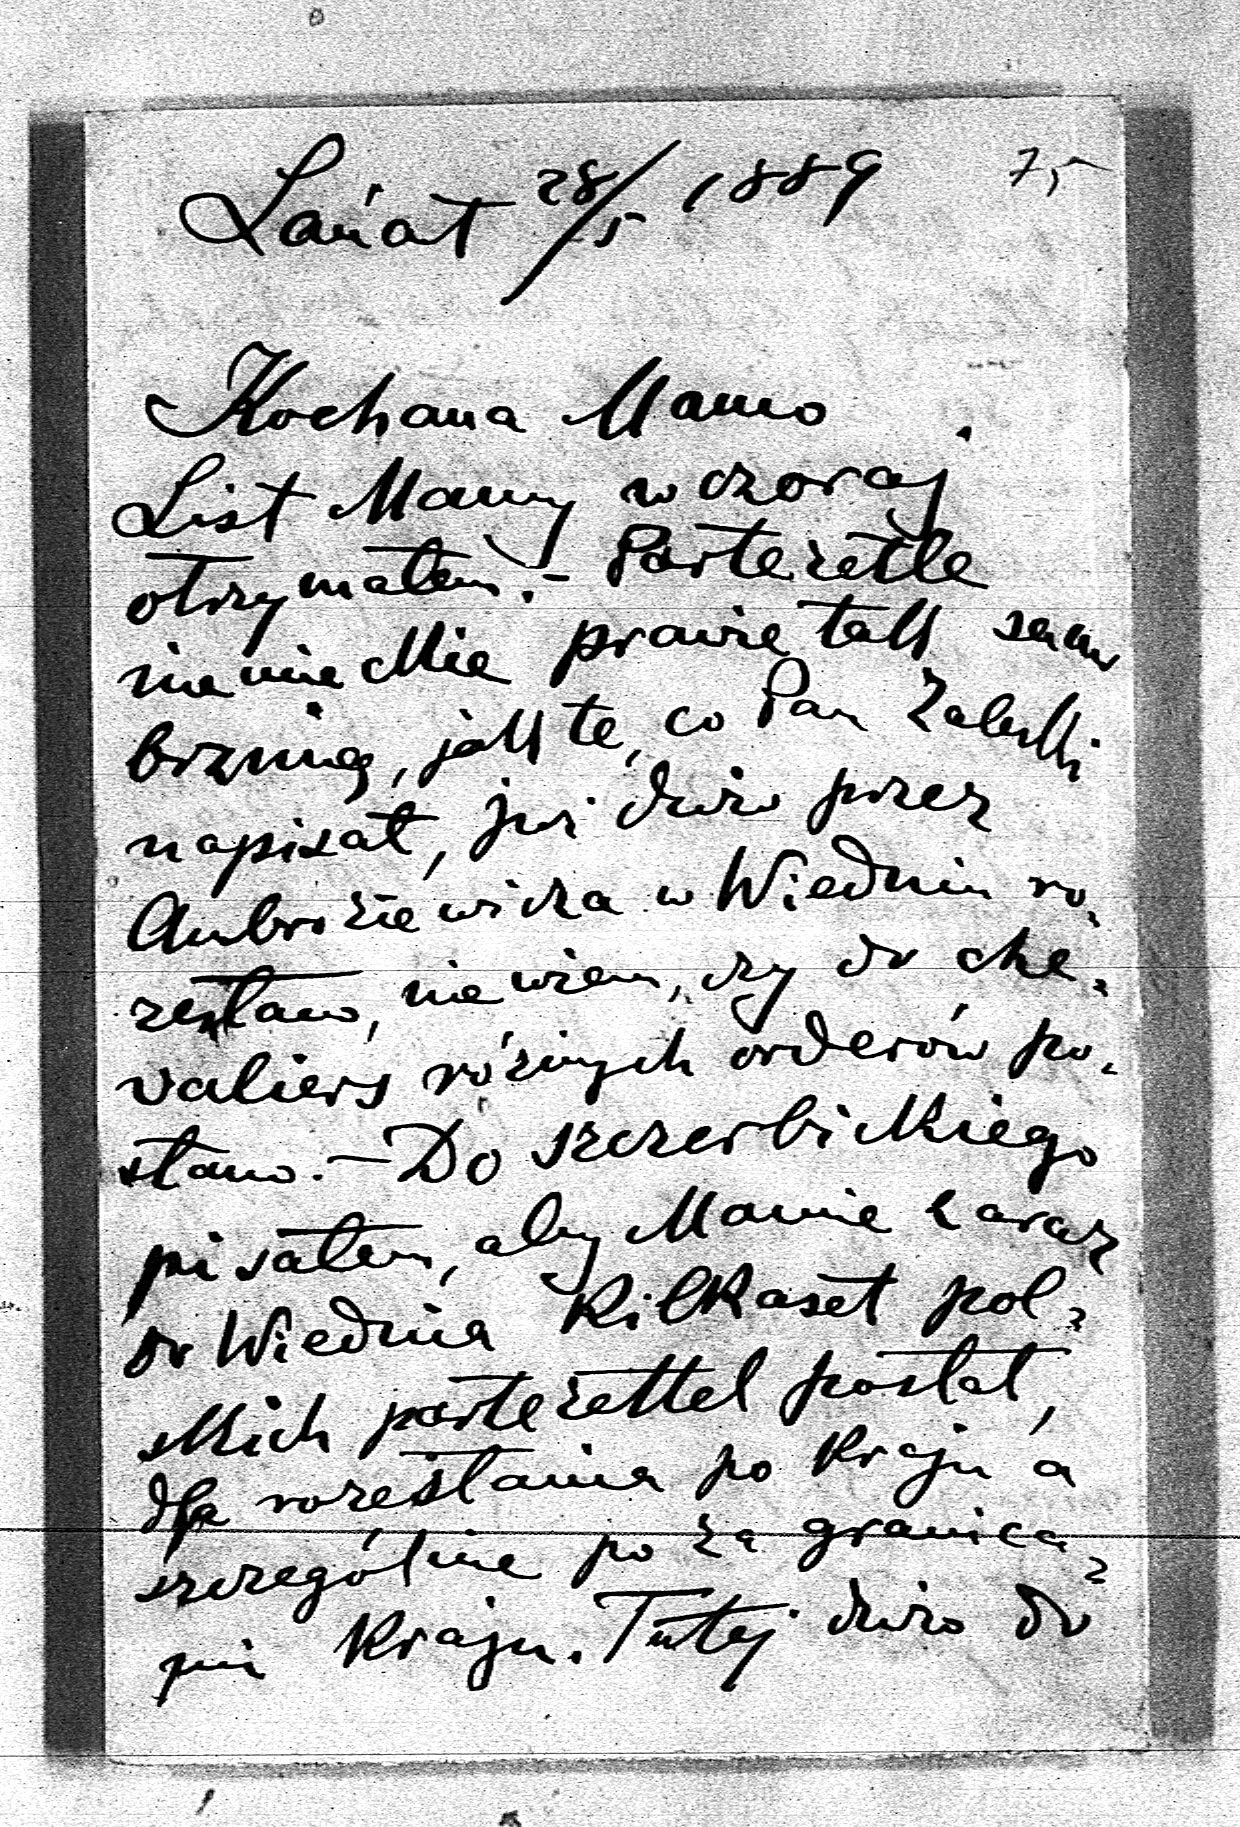 Łańcut 28/5 1889 75
Kochana Mamo
List Mamy wczoraj
otrzymałem. – Partezetle
niemieckie prawie tak samo
brzmią, jak te, co Pan Zaleski
napisał, już dużo przez
Ambroziewicza w Wiedniu ro-
zesłano, nie wiem, czy do che-
valiers różnych orderów po-
słano. – Do Szczerbickiego
pisałem, aby Mamie zaraz
do Wiednia kilkaset pol-
skich partezettel posłał,
dla rozesłania po kraju a
szczególnie po za granica-
mi kraju. Tutaj dużo do